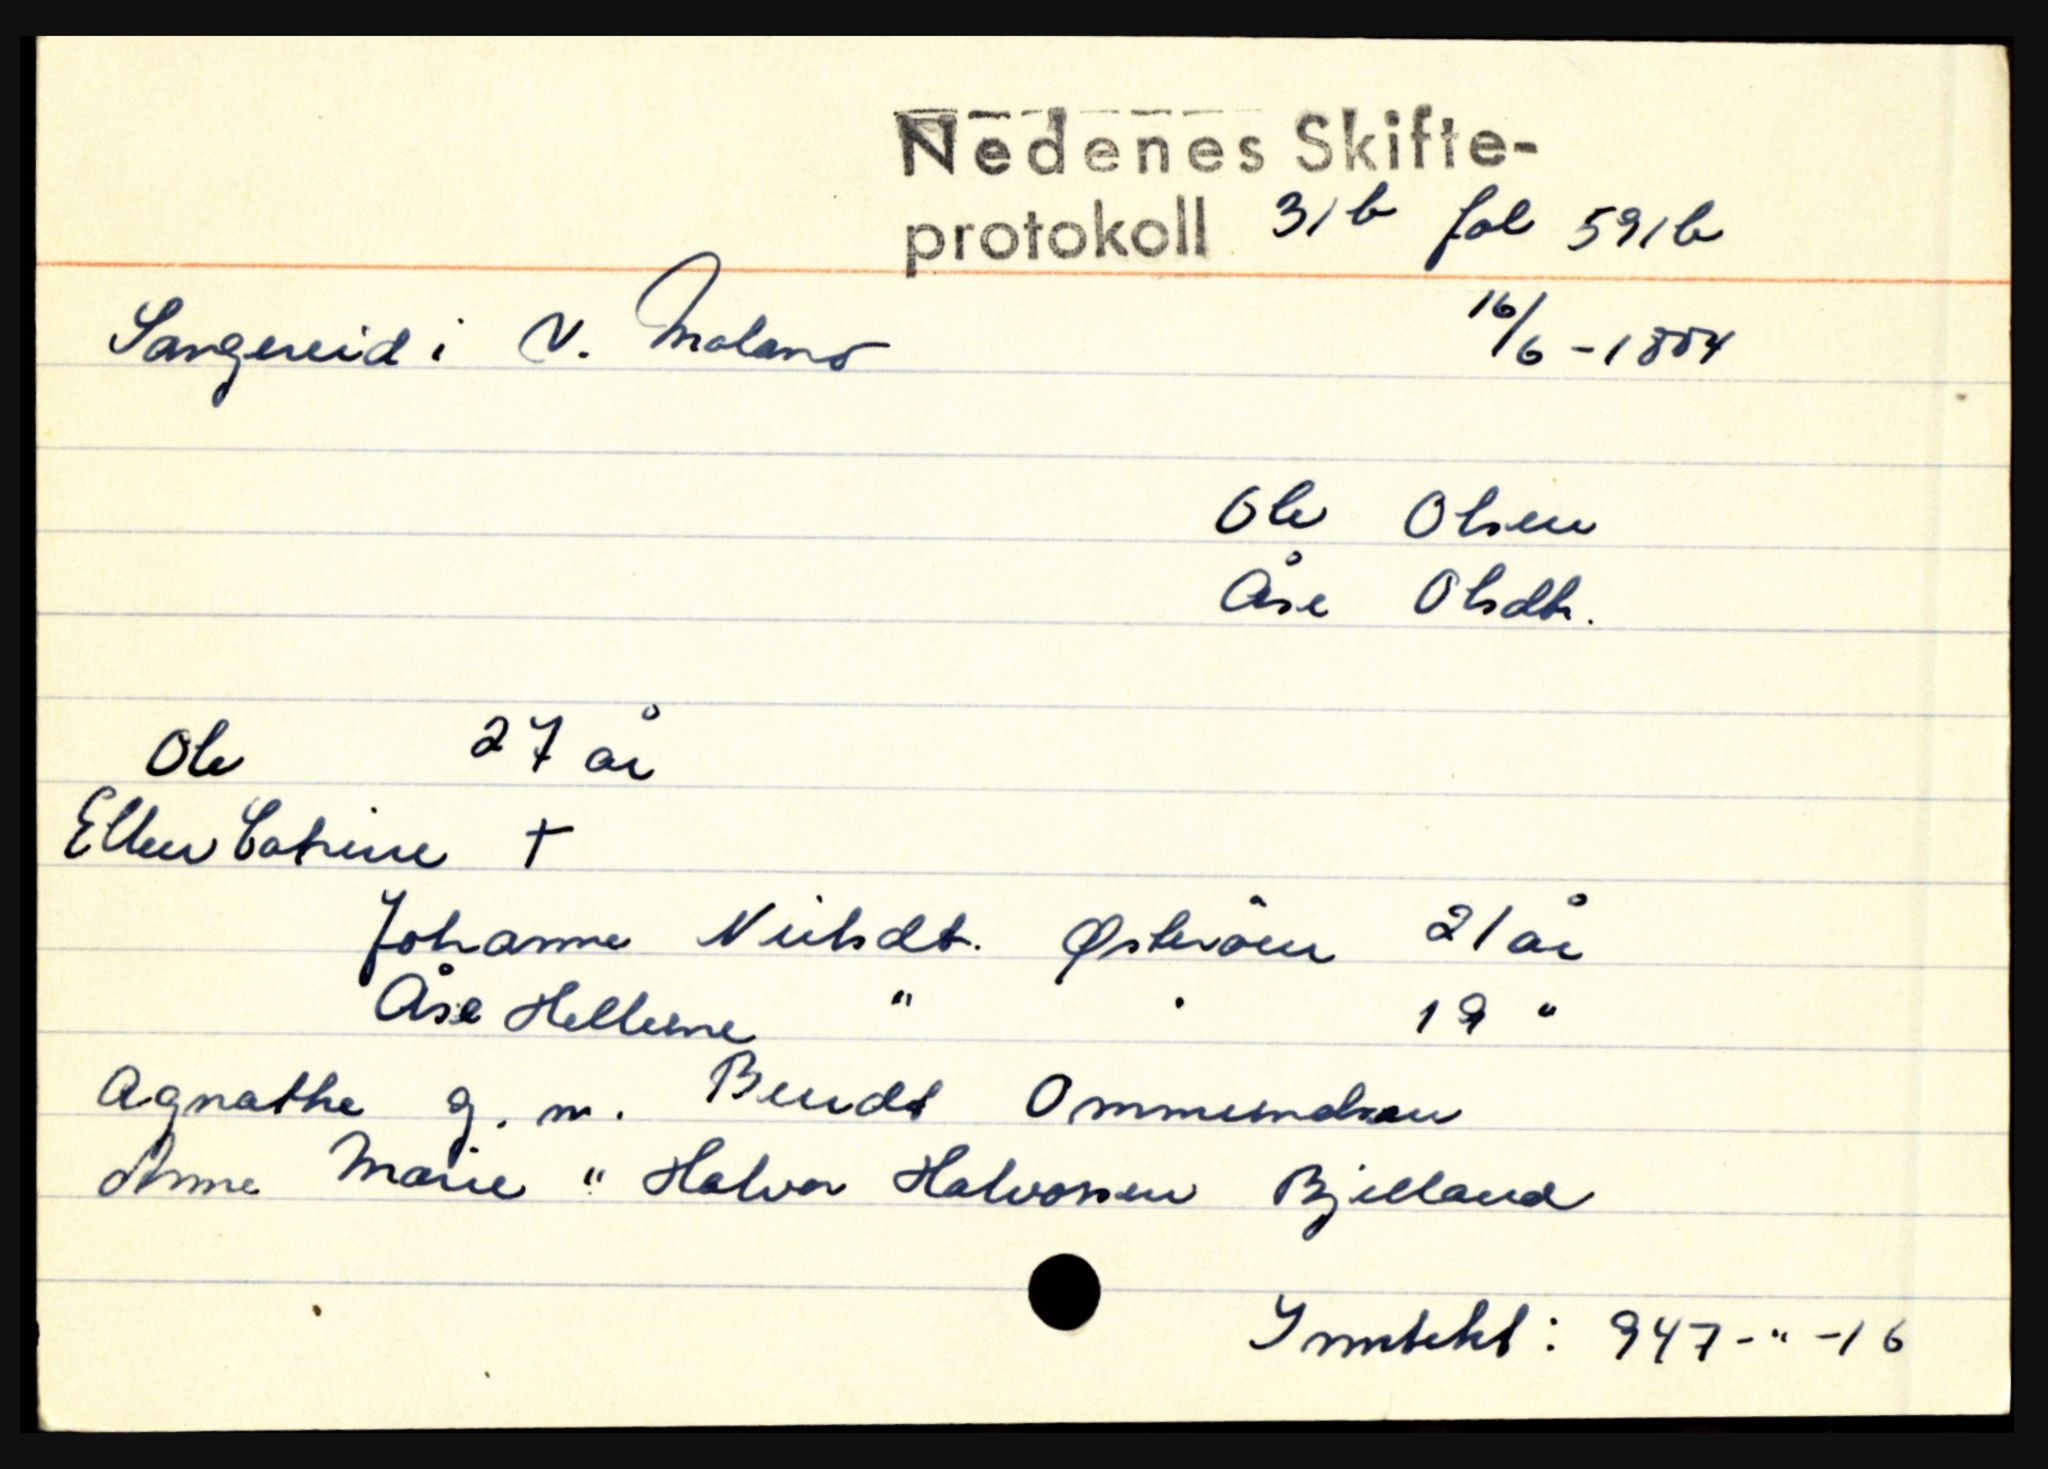 Nedenes Skifte-
protokoll 31b fol 591b
Sangereid i V. Moland 16/6-1854
Ole Olsen
Åse Olsdtr.
Ole 27 år
Ellen Catrine †
Johanne Nielsdtr. Østeråen 21 år
Åse Hellene " " 19 "
Agnathe g. m. Bendt Ommundsen
Anne Marie " Halvor Halvorsen Bjelland
Inntekt: 947-"-16